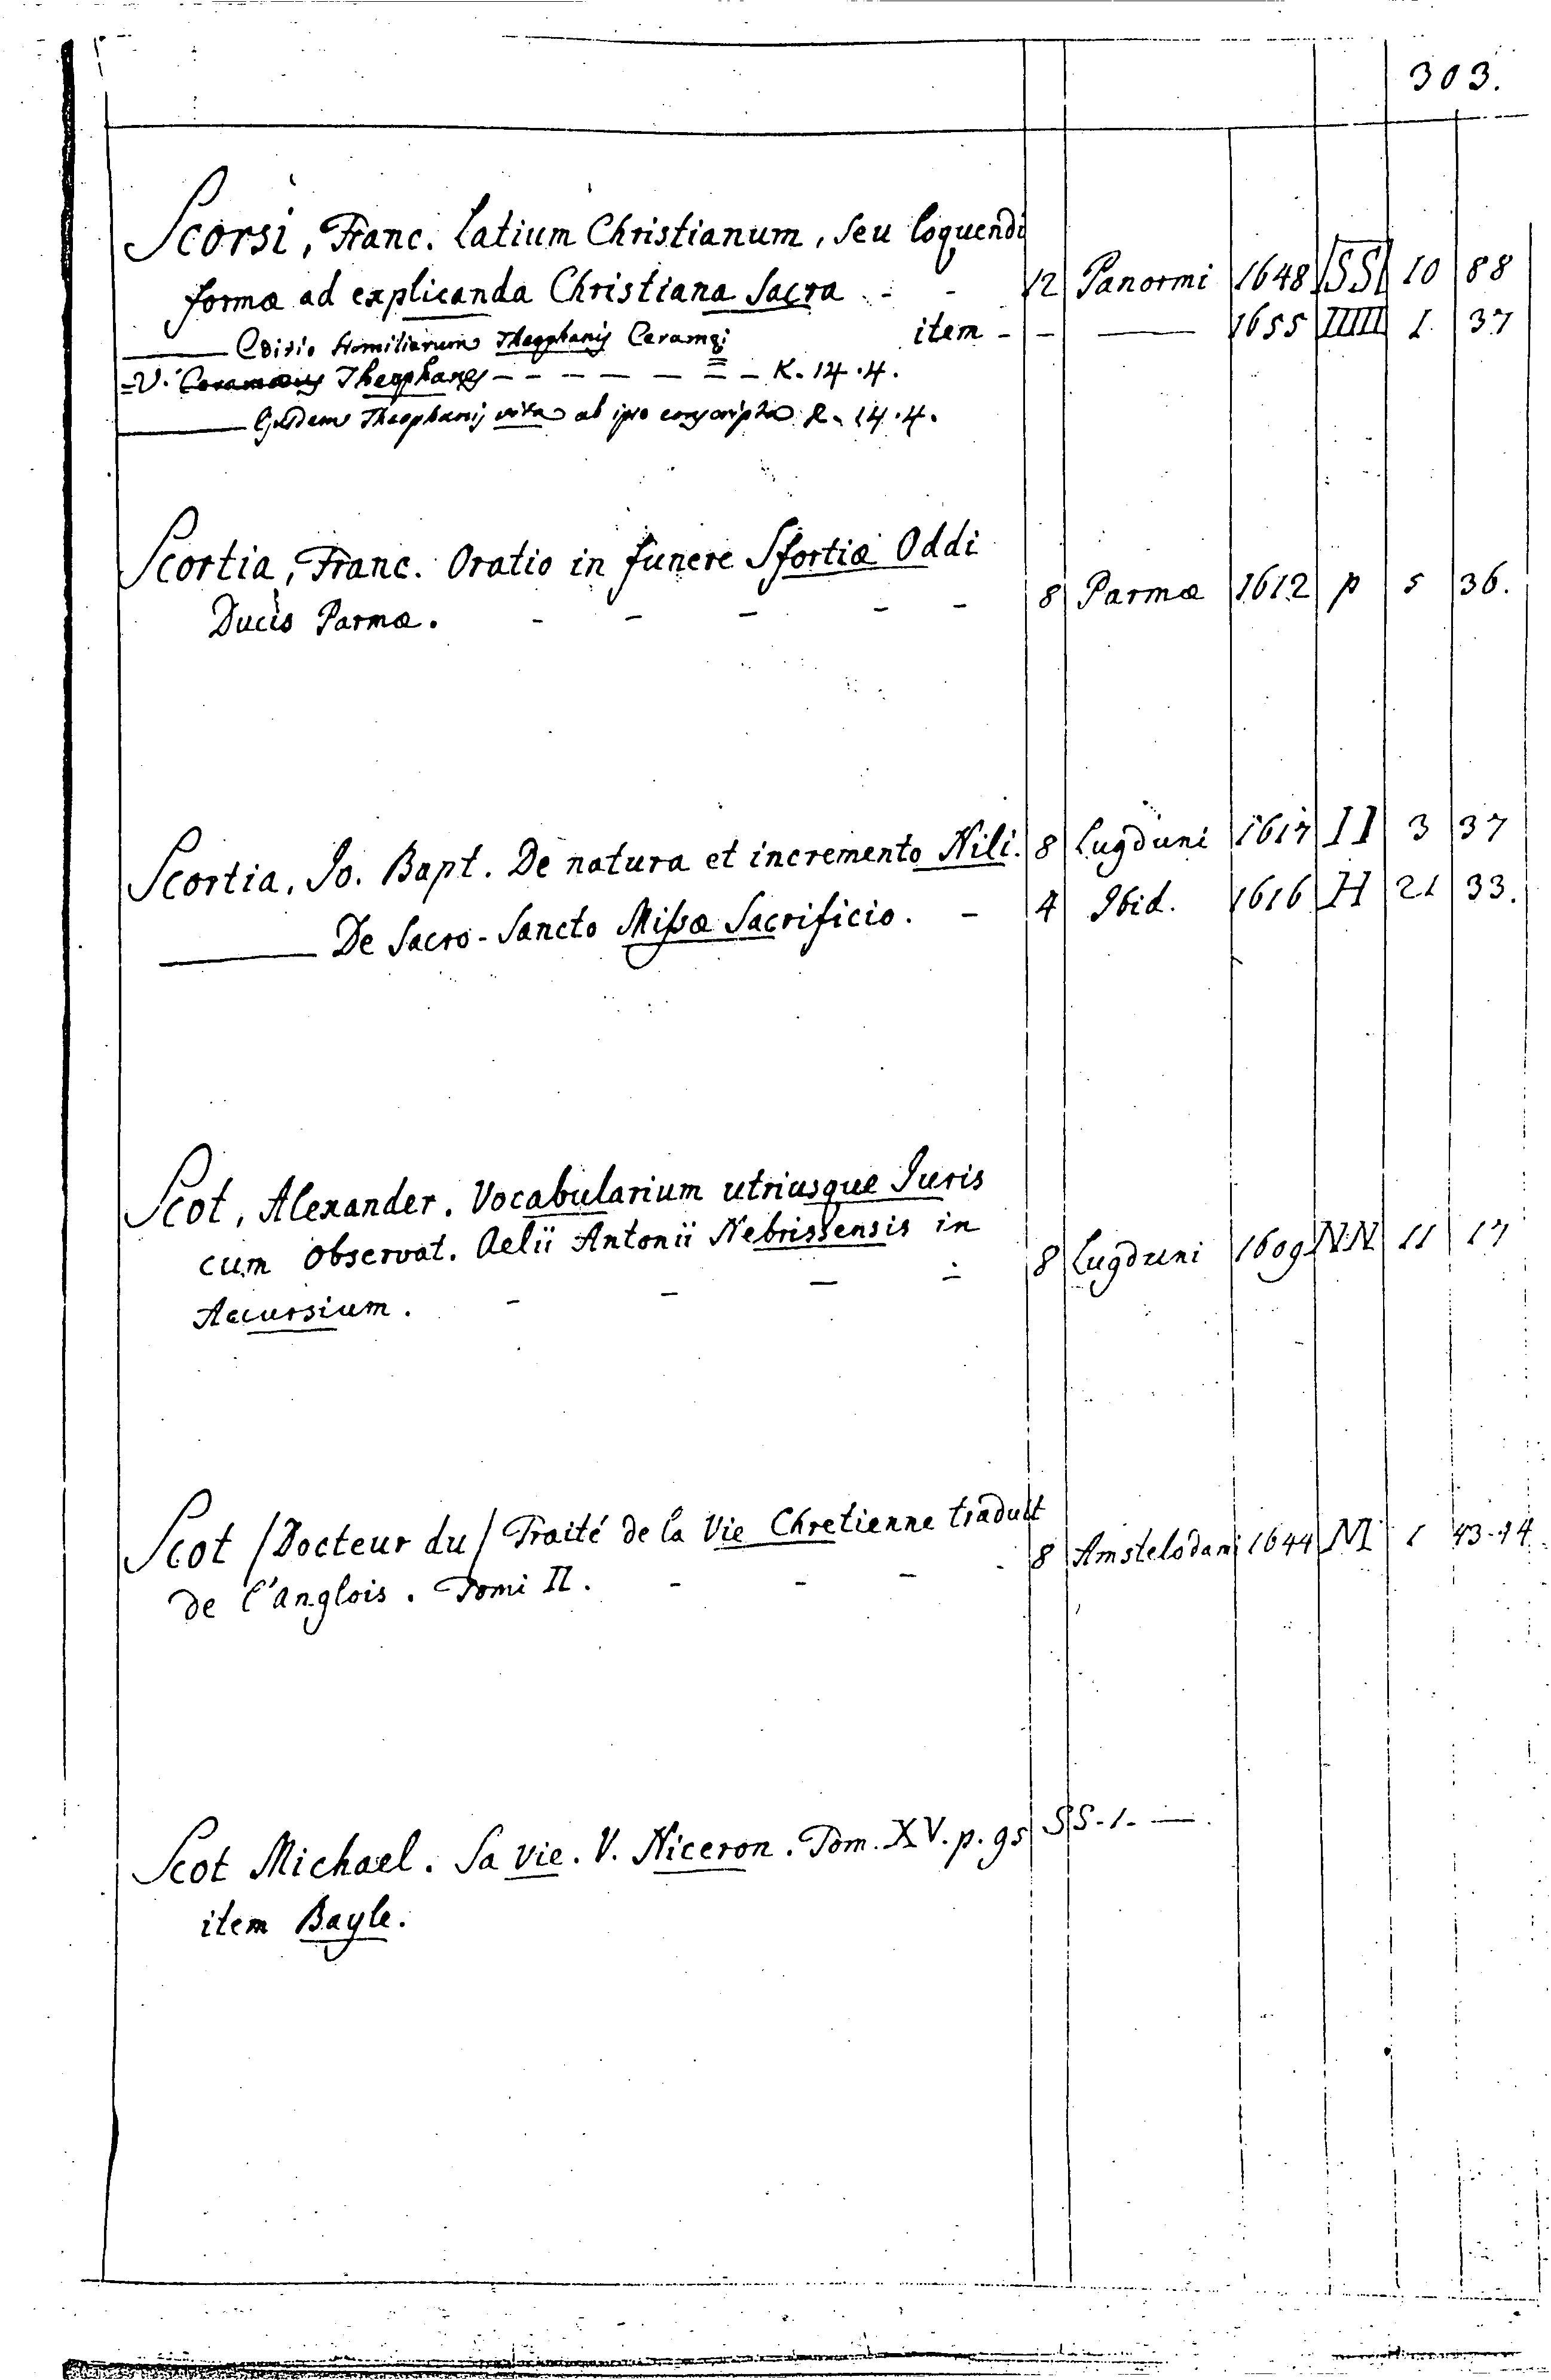 303.
Scorsi, Franc. Latium Christianum, seu loquendi
formæ ad explicanda Christiana Sacra - - 12 Panormi 1648 SSI 10 88
item - - — 1655 IIIII 1. 37
— Editio Homiliarum Theophanis Ceramei
=V. Ceramæus Theophanes - - - - - = - K. 14.4.
— Ejusdem Theophanis vita ab ipso conscripta K. 14.4.
Scortia, Franc. Oratio in funere Sfortiæ Oddi
Ducis Parmæ. - - - - - 8 Parmæ 1612 p 5 36.
Scortia, Jo. Bapt. De natura et incremento Nili. 8 Lugduni 1617 II 3 37
— De Sacro-Sancto Missæ Sacrificio. - 4 Ibid. 1616 H 21 33.
Scot, Alexander. Vocabularium utriusque Juris
cum observat. Aelii Antonii Nebrissensis in 8 Lugduni 1609 NN 11 17
Accursium. - - - -
Scot /Docteur du/ Traité de la Vie Chretienne traduit
de l'anglois. Tomi II. - - - - 8 Amstelodami 1644 M 1 43-44
Scot Michael. Sa vie. V. Niceron. Tom. XV. p. 95 SS-1. —.
item Bayle.